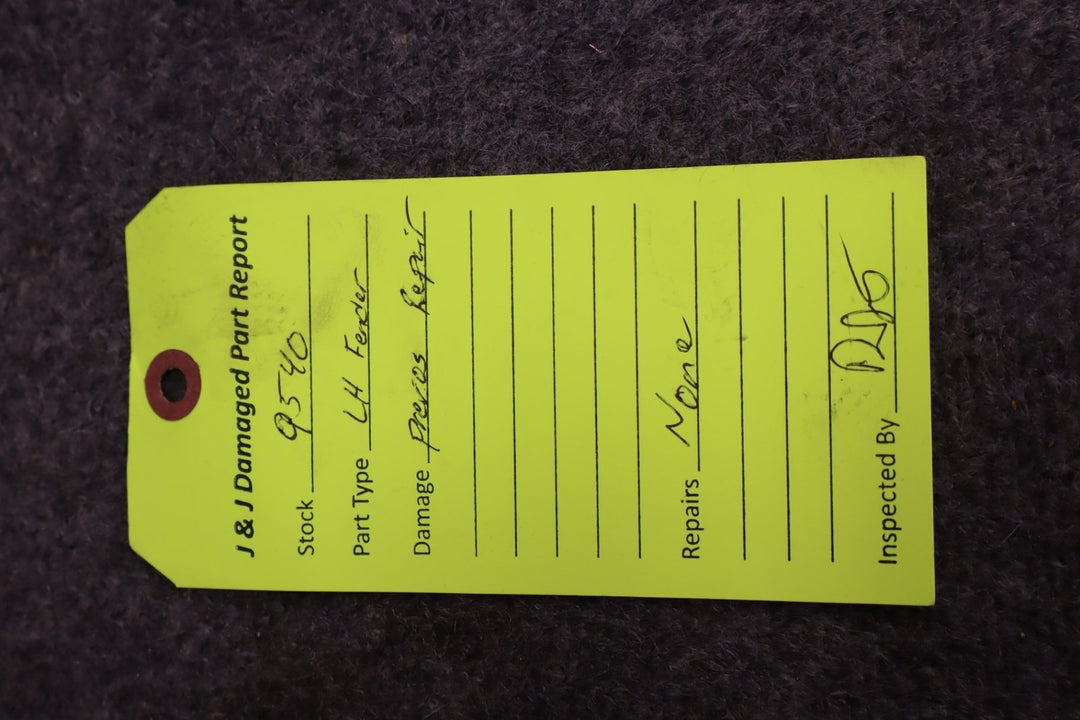 J & J Damaged Part Report
Stock 9540
Part Type LH Fender
Damage Previos Repair
Repairs None
Inspected By